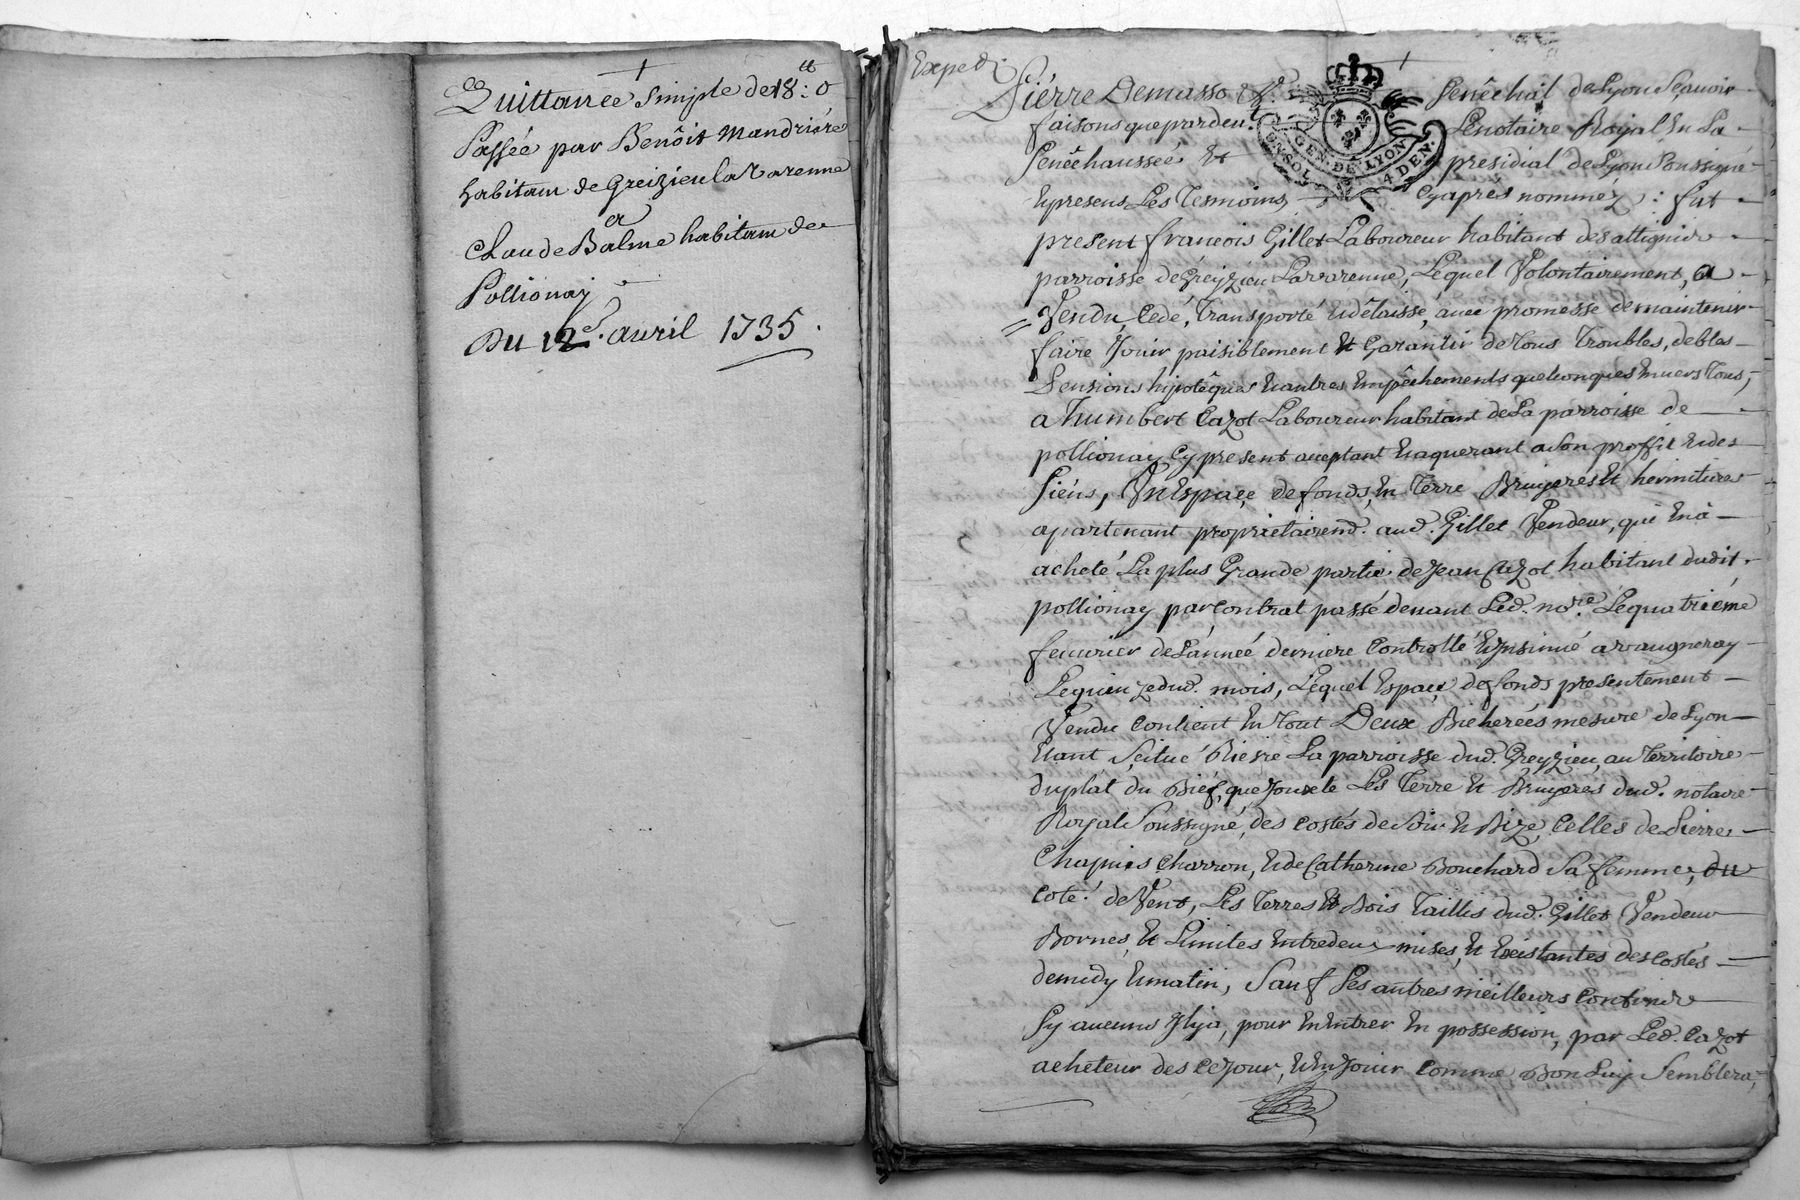 +
Quittance simple de 18ᵗᵗ: 0
Passée par Benôit Mandriére
habitant de Greizieu la Varenne
a
Claude Balme habitant de
Pollionay
Du 12e. avril 1735.
Exped
+
Pierre Demasso &. Senêchal de Lyon Sçavoir
faisons que pardeut. Lenotaire Royal En La
Senêchausseé Et présidial de Lyon Soussigné
GEN. DE LYON
4 DEN.
Epresens Les Temoins, Cyaprés nommèz : fut
present francois Gillet Laboureur habitant des attignier
parroisse de Greyzieu Lavarenne, Lequel Volontairement, a
Vendu, Cedé, Transporté Et délaissé, avec promesse de maintenir
faire Jouir paisiblement Et Garantir de Tous Troubles, debtes
Pensions hipotêques Et autres Empêchements quelconques Envers Tous,
a humbert Cazot Laboureur habitant de La parroisse de
pollionay Cy present aceptant Et aquerant a Son proffit Et des
Siens, Un Espaçe de fonds, En Terre Bruyeres Et hermitures
apartenant proprietairemt. aud. Gillet Vendeur, qui En à
acheté La plus Grande partie de Jean Cazot habitant dudit
pollionay par Contrat passé devant Led. nore. Le quatriéme
fevurier de L'anneé derniere Controllé Et Insinué a vaugneray
Le quinzedud. mois, Lequel Espace de fonds presentement
Vendu Contient En Tout Deux Bicherées mesure de Lyon
Etant Scitué Riesre La parroisse dud. Greyzieu, au Territoire
du plât du Bief, que Jouxte Les Terre Et Bruyeres dud. notaire
Royal Soussigné, des costés de Soir Et Bize, Celles de Pierre
Chapuis Charron, Et de Catherine Bouchard Sa femme, du
coté de Vent, Les Terres Et Bois Taillis dud. Gillet Vendeur
Bornes, Et Limites Entredeux mises, Et Existantes des Costés
de midy Et matin, Sauf Ses autres meilleurs Confins
Sy aucuns Ilya, pour En Entrer En possession, par Led. Cazot
acheteur des Cejour, Et En Jouir Comme Bon Luy Semblera,